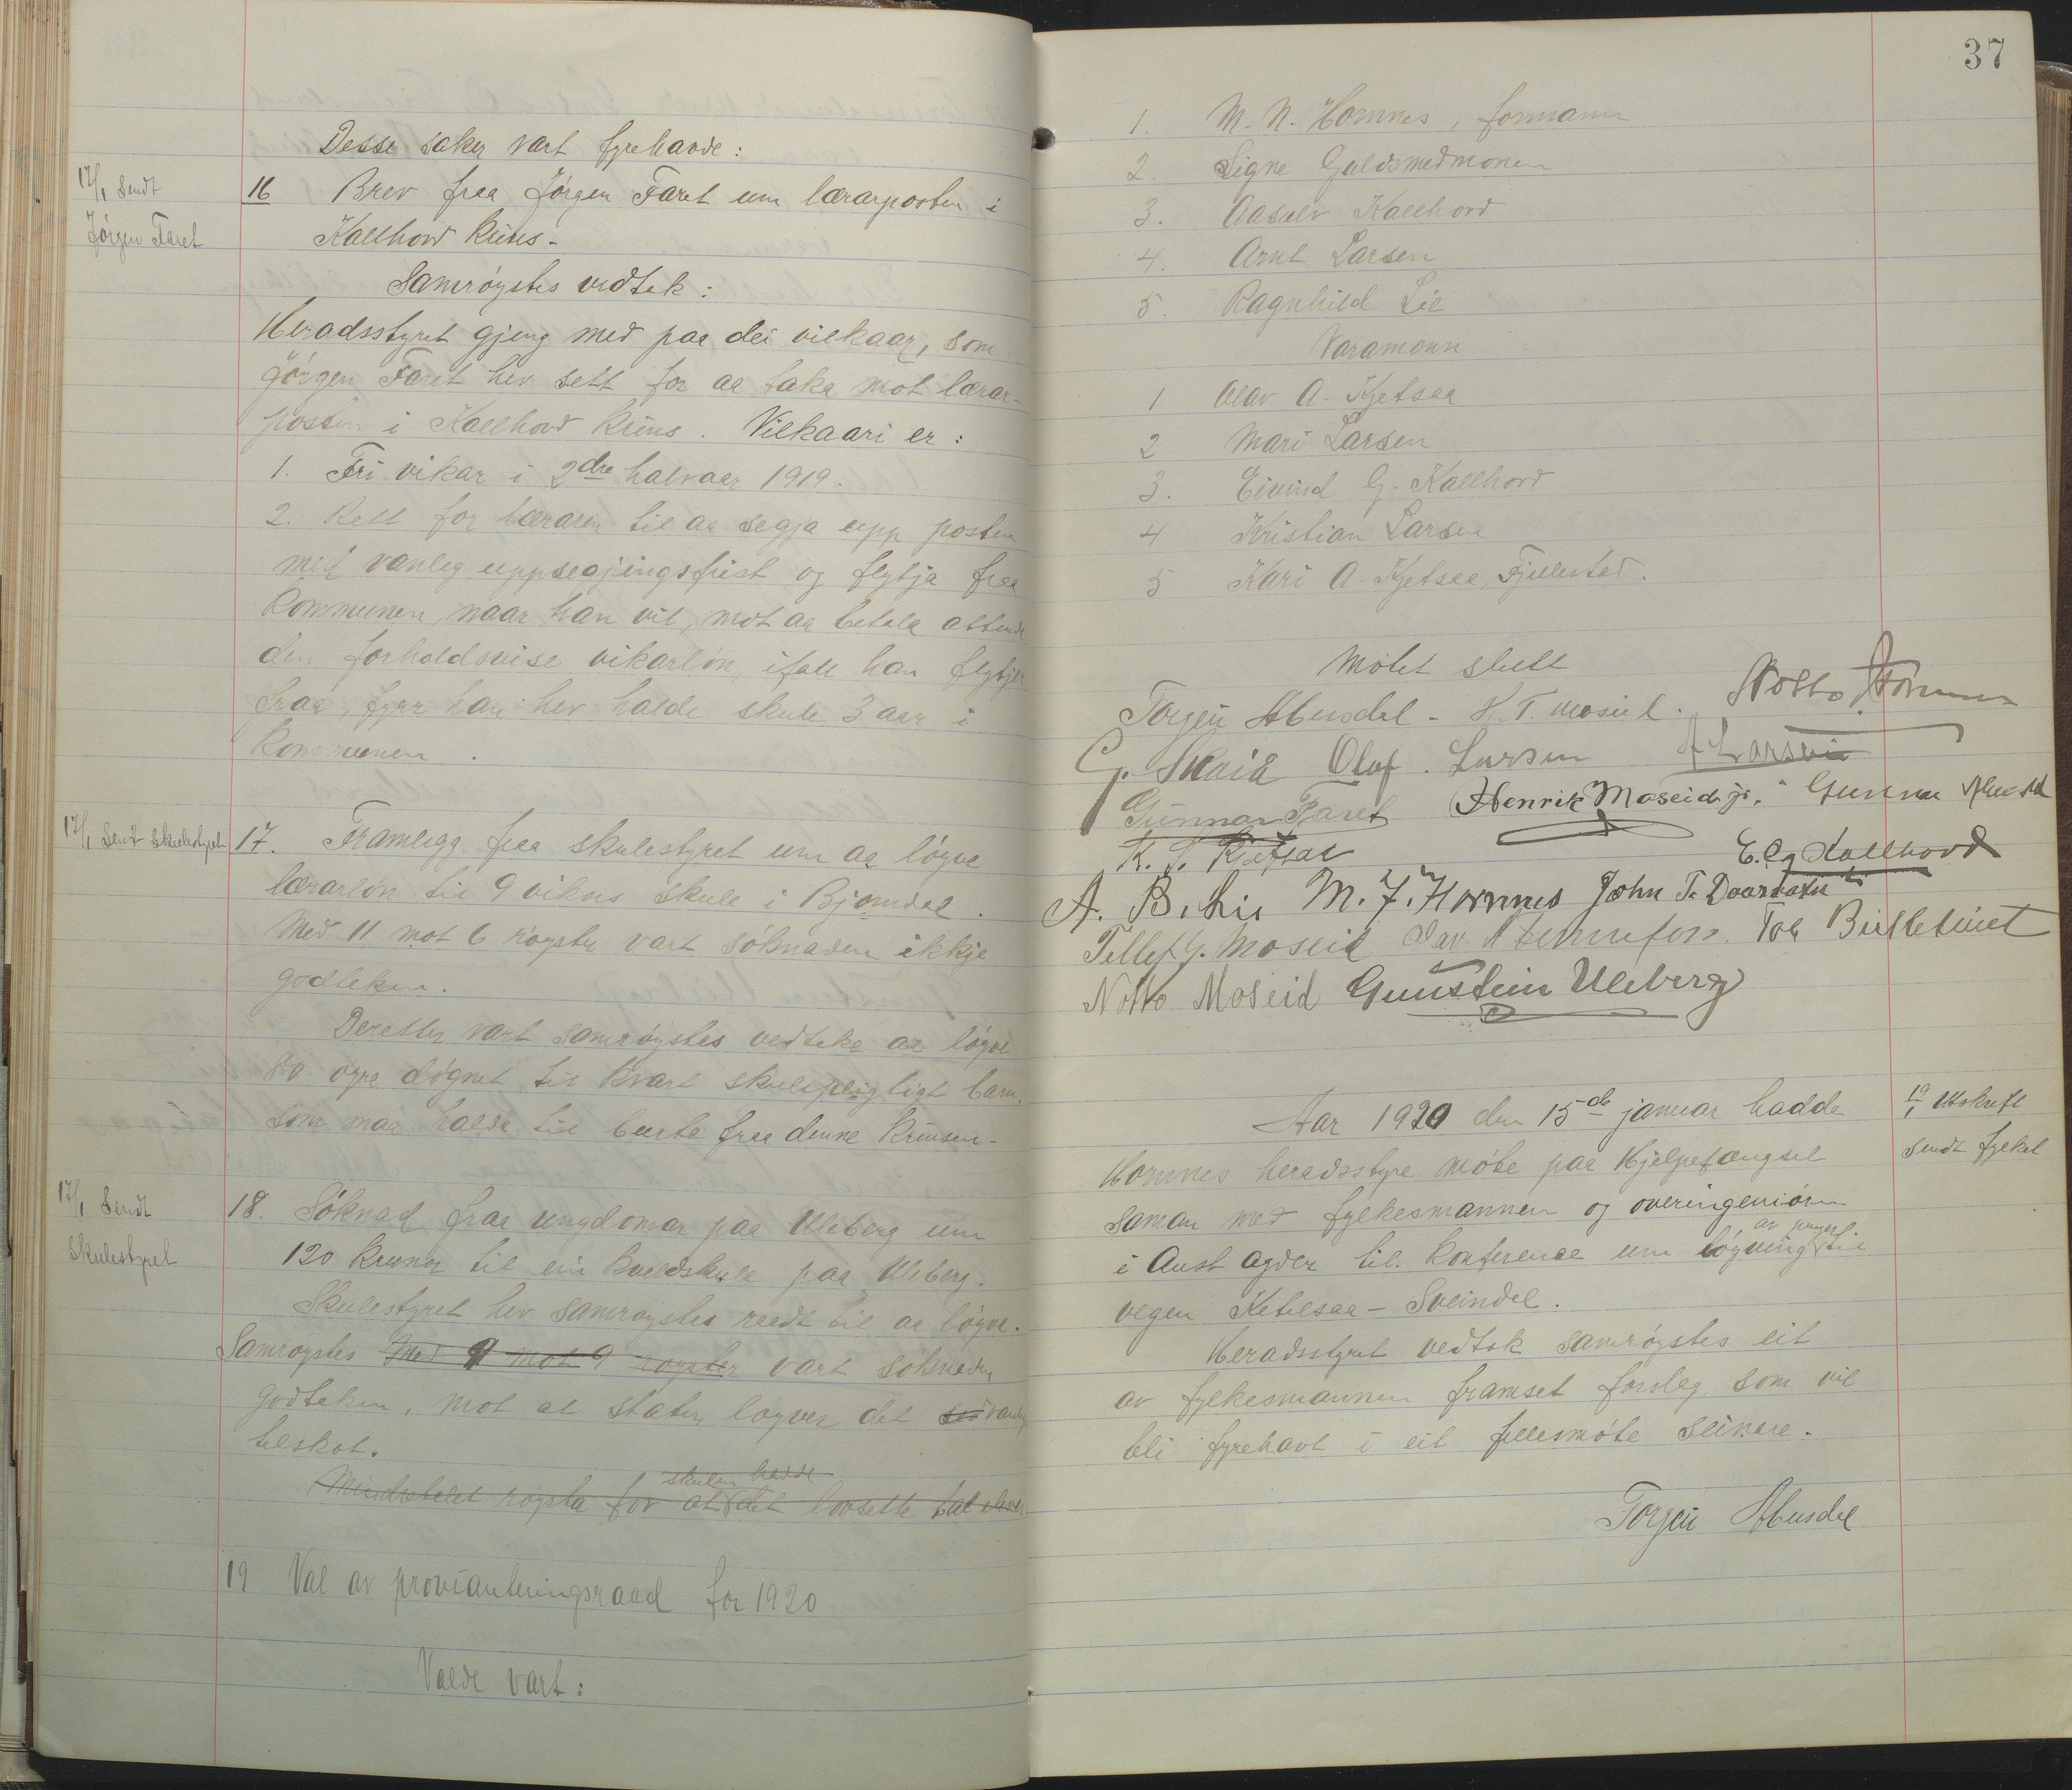 Desse saker vart fyrehavde:
17/1 Sendt
Jørgen Faret
16 Brev fraa Jørgen Faret um lærarposten i
Kallhovd krins.
Samrøystes vedtak:
Heradsstyret gjeng med paa dei vilkaar, som
Jørgen Faret hev sett for aa taka mot lærar-
posten i Kallhovd krins. Vilkaari er:
1. Fri vikar i 2dre halvaar 1919.
2. Rett for læraren til aa segja upp posten
med vanleg uppsegjingsfrist og flytja fraa
kommunen, naar han vil, mot aa betala attende
den forholdsvise vikarløn, ifall han flytjer
fraa, fyrr han hev halde skule 3 aar i
kommunen.
17/1 Sendt skulestyret
17. Framlegg fraa skulestyret um aa løyve
lærarløn til 9 vikors skule i Bjorndal.
Med 11 mot 6 røyster vart søknaden ikkje
godteken.
Deretter vart samrøystes vedteke aa løyve
80 øyre døgnet til kvart skulepligtigt barn,
som maa halda til burte fraa denne krinsen.
17/1 Sendt
Skulestyret
18. Søknad fraa ungdomar paa Uleberg um
120 krunor til ein kveldskule paa Uleberg.
Skulestyret hev samrøystes raadt til aa løyve.
Samrøystes Med 9 mot 9 røyster vart søknaden
godteken, mot at staten løyver det sed vanlege
tilskot.
skulen hadde
Mindretalet røysta for at det lovsette tal elever.
19 Val av provianteringsraad for 1920
Valde vart:
37
1. M. N. Hornnes, formann
2. Signe Guldsmedmonen
3. Aasulv Kallhovd
4. Arnt Larsen
5. Ragnhild Lie
Varamenn
1 Olav A. Kjetsaa
2 Mari Larsen
3. Eivind G. Kallhovd
4 Kristian Larsen
5 Kari A. Kjetsaa, Fjellestad.
Møtet slutt
Torgeir Abusdal - H. T. Moseid. Notto
G. Skaiå Olaf. Larsen A Larsen
Gunnar Faret Henrik Moseid jr. Gunnar Abusdal
K. J. Kjetsaa E. G. Kallhovd
A. B. Lie M. J. Hornnes John T.
Tellef G. Moseid Olav Tor
Notto Moseid Gunstein Uleberg
Aar 1920 den 15de januar hadde
Hornnes heradsstyre møte paa Hjelpefengsel
saman med fylkesmannen og overingeniøren
av pengar
i Aust Agder til konferense um løyving til
vegen Ketilsaa - Sveindal.
19/1 Utskrift
sendt fylket
Heradsstyret vedtok samrøystes eit
av fylkesmannen framset forslag, som vil
bli fyrehavt i eit fellesmøte seinare.
Torgeir Abusdal